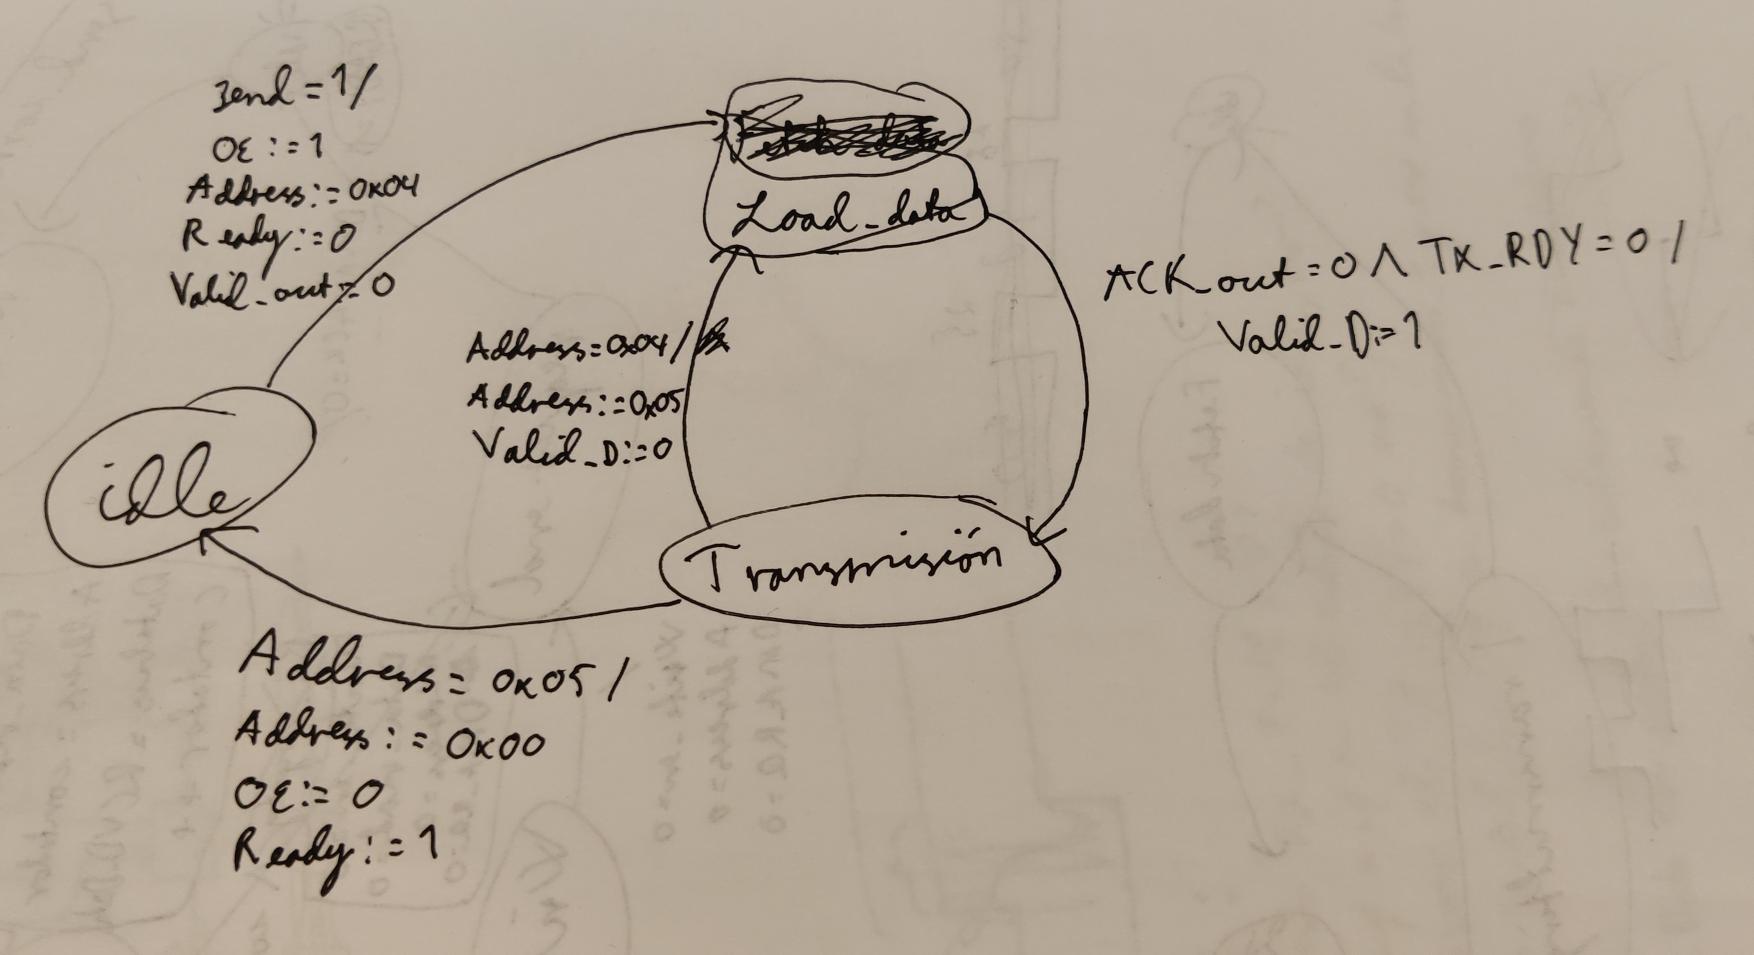 Send = 1/
OE := 1
Address := 0x04
Ready := 0
Valid_out := 0
Load_data
ACK_out = 0 ∧ TX_RDY = 0 /
Valid_D := 1
Address = 0x04 /
Address := 0x05
Valid_D := 0
idle
Transmisión
Address = 0x05 /
Address := 0x00
OE := 0
Ready := 1